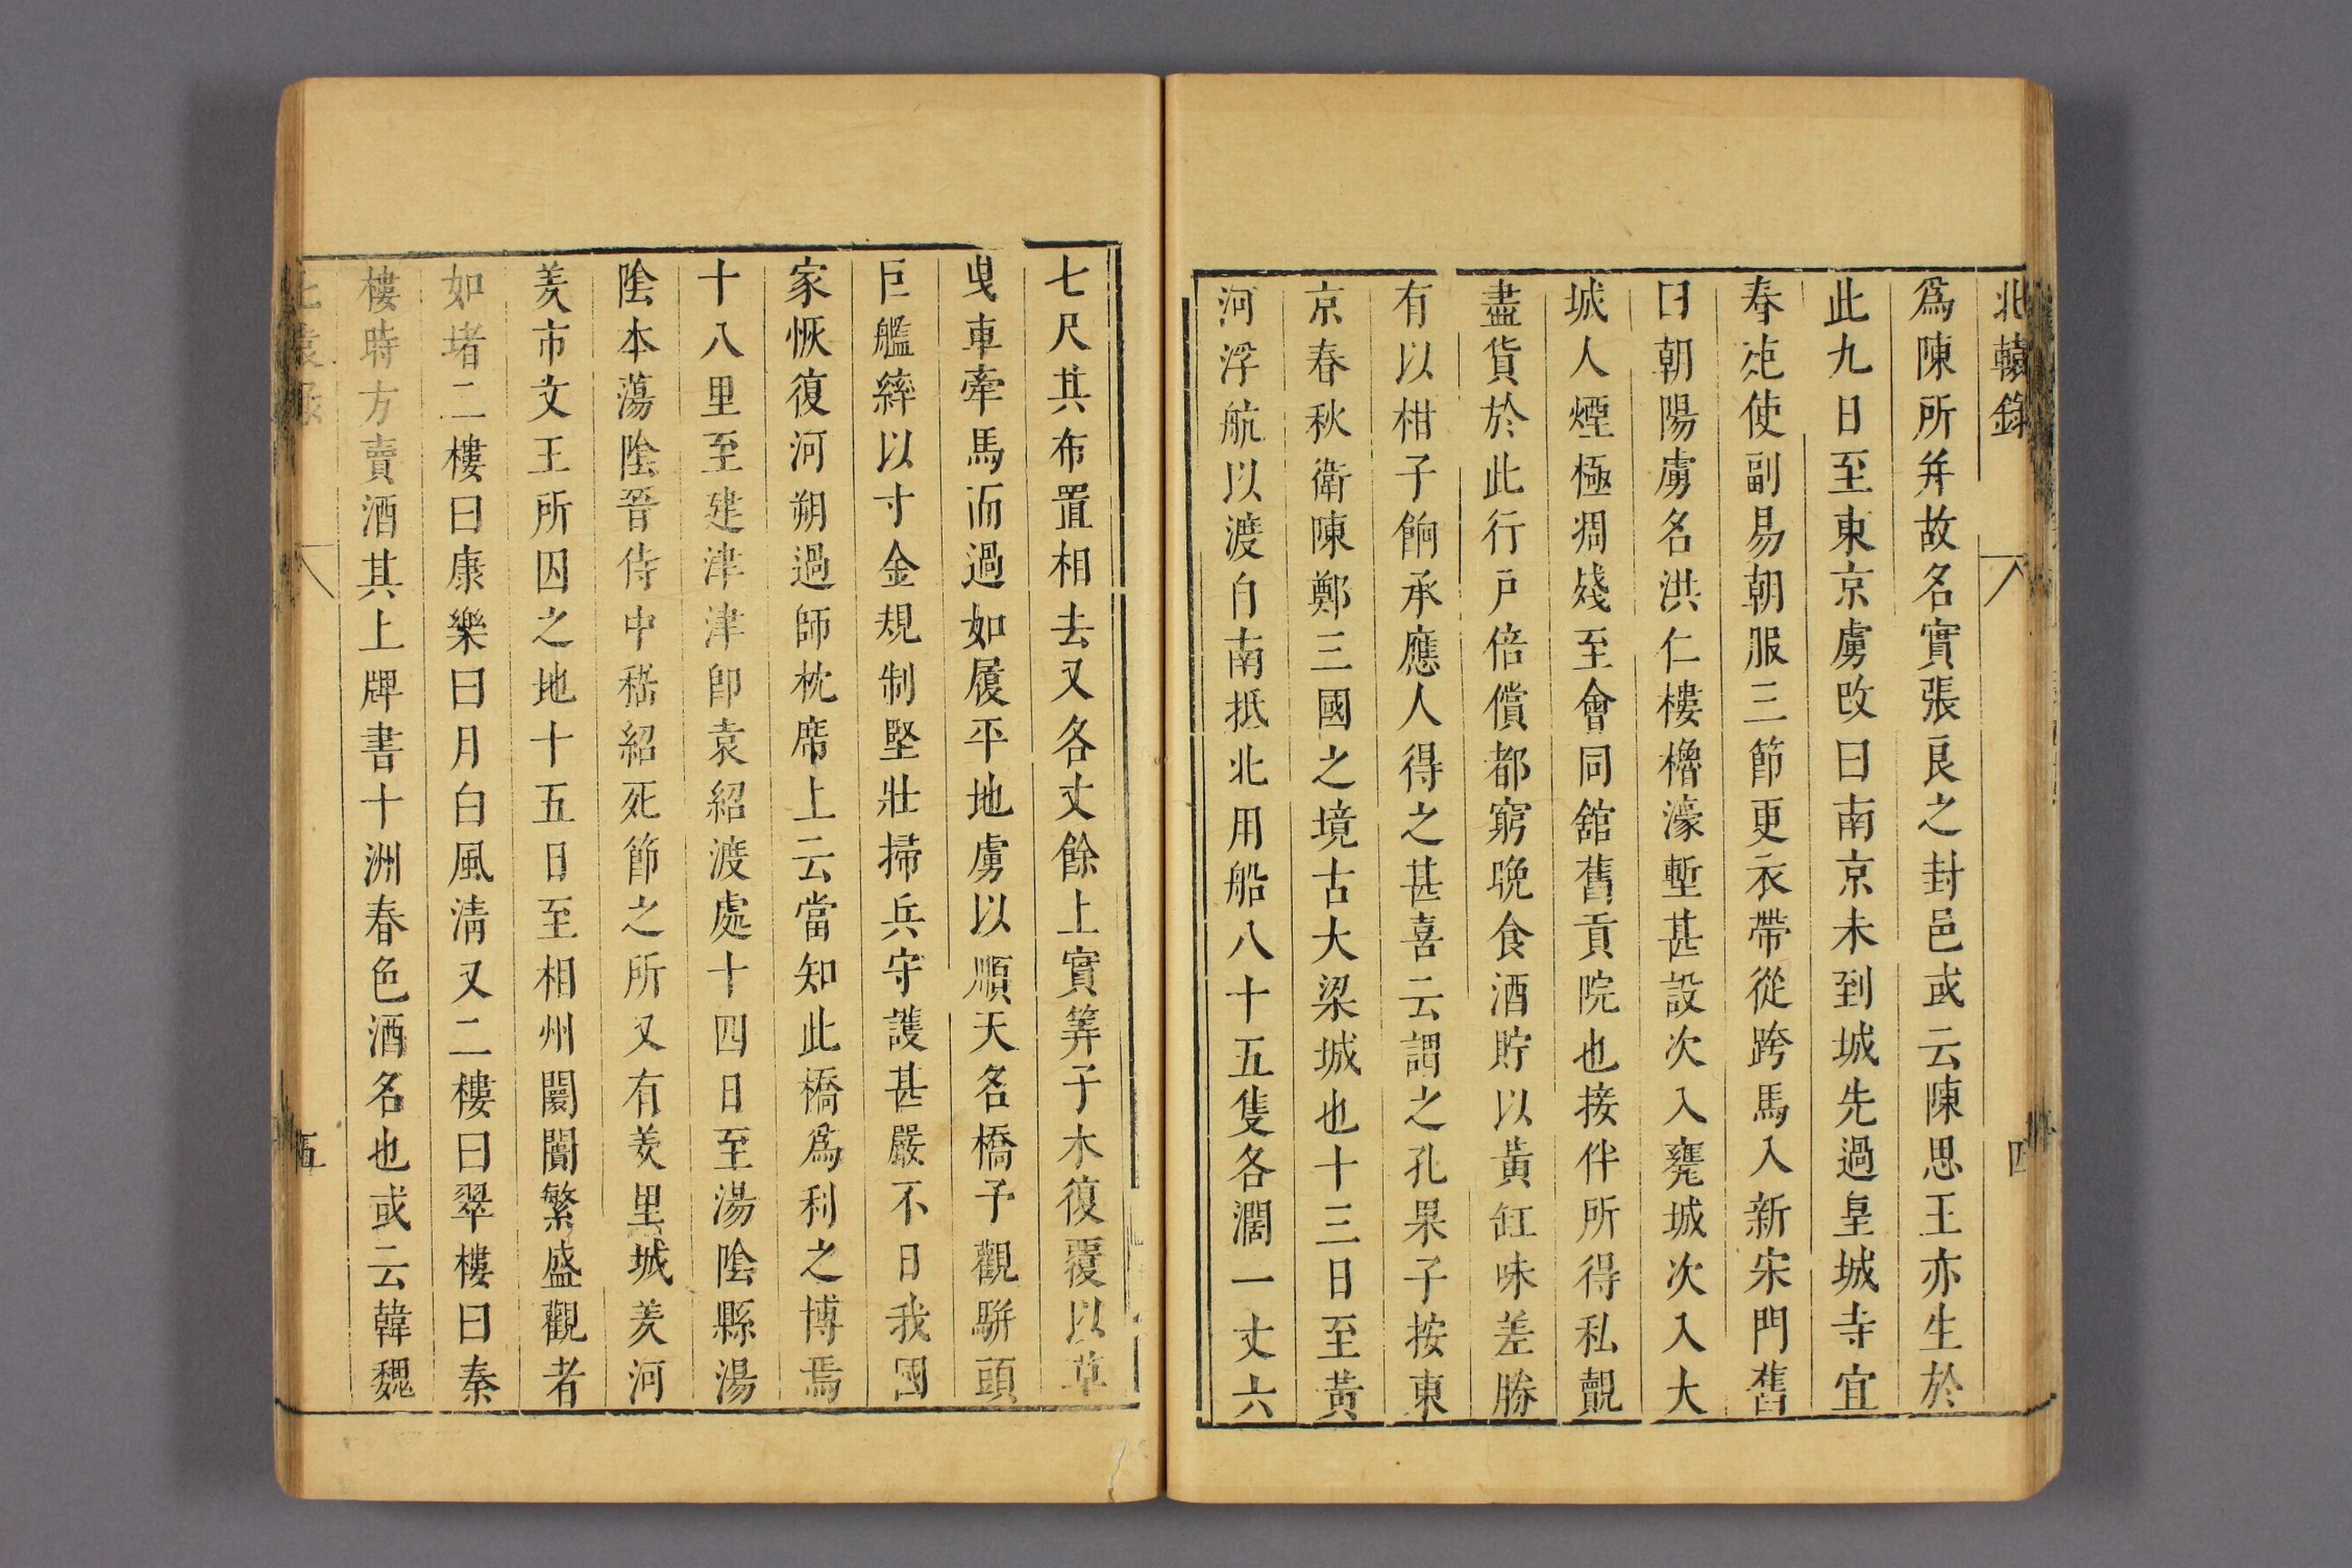 北轅錄
四
爲陳所并故名實張良之封邑或云陳思王亦生於
此九日至東京虜改曰南京未到城先過皇城寺宜
春苑使副易朝服三節更衣帶從跨馬入新宋門舊
曰朝陽虜名洪仁樓櫓濠塹甚設次入甕城次入大
城人煙極凋殘至會同舘舊貢院也接伴所得私覿
盡貨於此行戶倍償都窮晩食酒貯以黃缸味差勝
有以柑子餉承應人得之甚喜云謂之孔果子按東
京春秋衛陳鄭三國之境古大梁城也十三日至黃
河浮航以渡自南抵北用船八十五隻各濶一丈六
七尺其布置相去又各丈餘上實筭子木復覆以草
曳車牽馬而過如履平地虜以順天名橋予觀駢頭
巨艦縡以寸金規制堅壯掃兵守護甚嚴不日我國
家恢復河朔過師枕席上云當知此橋爲利之博焉
十八里至建津津卽袁紹渡處十四日至湯陰縣湯
陰本蕩陰晉侍中嵇紹死節之所又有羑里城羑河
羑市文王所囚之地十五日至相州闤闠繁盛觀者
如堵二樓曰康樂曰月白風淸又二樓曰翠樓曰秦
樓時方賣酒其上牌書十洲春色酒名也或云韓魏
五